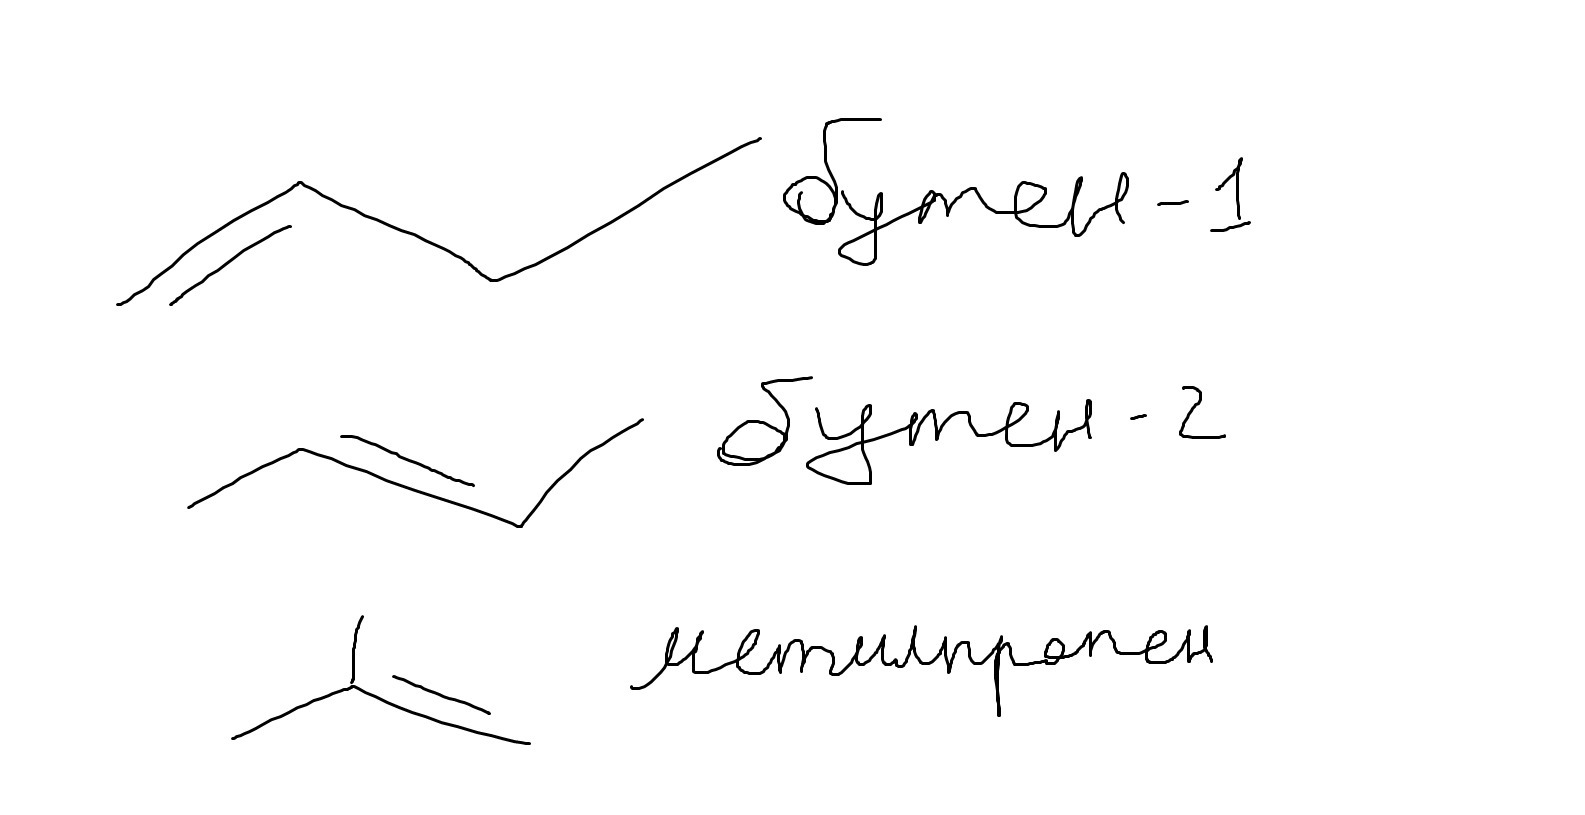 бутен-1
бутен-2
метилпропен